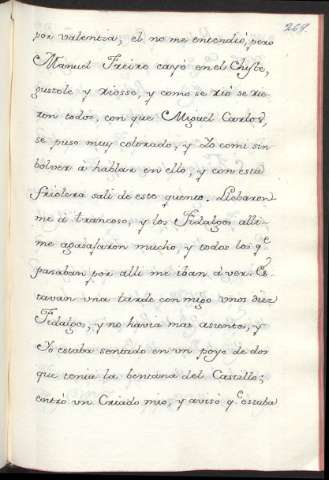 269.
por valentia, el no me entendió, pero
Manuel Freire cayó en el Chiste,
gustole y riosse, y como se rió se rie
ron todos, con que Miguel Carlos,
se puso muy colorado, y Yo comi sin
bolver a hablar en ello, y con esta
friolera sali de este quento. Llebaron
me á trancoso, y los Fidalgos alli
me agasajaron mucho, y todos los q.e
pasaban por alli me iban á ver. Es
tavan vna tarde con migo vnos diez
Fidalgos, y no havia mas asientos, y
Yo estaba sentado en vn poyo de dos
que tenia la bentana del Castillo;
entró vn Criado mio, y avisó q.e estaba